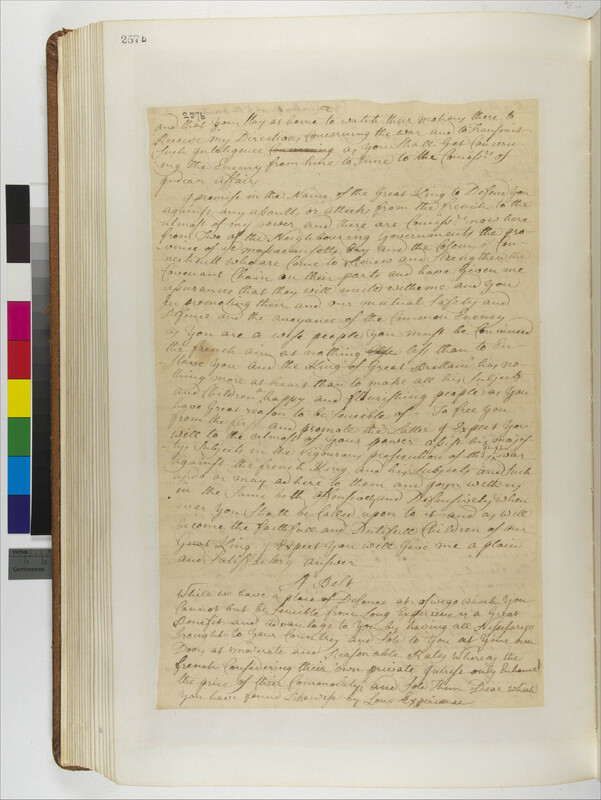 257b
2
257b
and that you stay at home to watch their motions there to
Receive my Directions Concerning the war and to Transmitt
Such Intelligence as you Shall Get Concern
ing the Enemy from time to time to the Comiss.rs of
Indian affair
I promise in the Name of the Great King to Defend You
against any assaults or attack from the French to the
utmost of my power and there are Comiss.rs now here
from Two of the Neighbouring Governments the pro
vince of ye massachusetts bay and the Colony of Con
necticutt who are Come to Renew and Strengthen the
Covenant Chain on their parts and have Given me
assurances that they will unite with me and You
in promoting their and our mutual Safety and
Defence and the anoyance of the Common Enemy
as You are a wise people you must be Convinced
the french aim at nothing less than to En
slave You and the King of Great Brittain has no
thing more at heart than to make all his Subjects
and Children happy and flourishing people as You
have Great reason to be Sencible of To free You
from the first and promote the Latter I Expect You
will to the utmost of Your power assist his majes
tys Subjects in the vigorous prosecution of this war
against the french King and his Subjects and Such
as do or may adhere to them and joyn with us
in the Same both offensively and Defensively when
ever You Shall be Called upon to it and as will
become the faithfull and Dutifull Children of our
Great King I Expect You will Give me a plain
and Satisfactory answer
A Belt
While we have a place of Defence at oswego which You
Cannot but be Sencible from Long Experience is a Great
Benefit and advantage to You by having all Nessessarys
brought to Your Country and Sold to You at Your own
Doors at moderate and Reasonable Rates Whereas the
french Considering their own private Intrest only Enhance
the price of their Commoditys and Sold Them Dear which
You have found Likewise by Long Experience